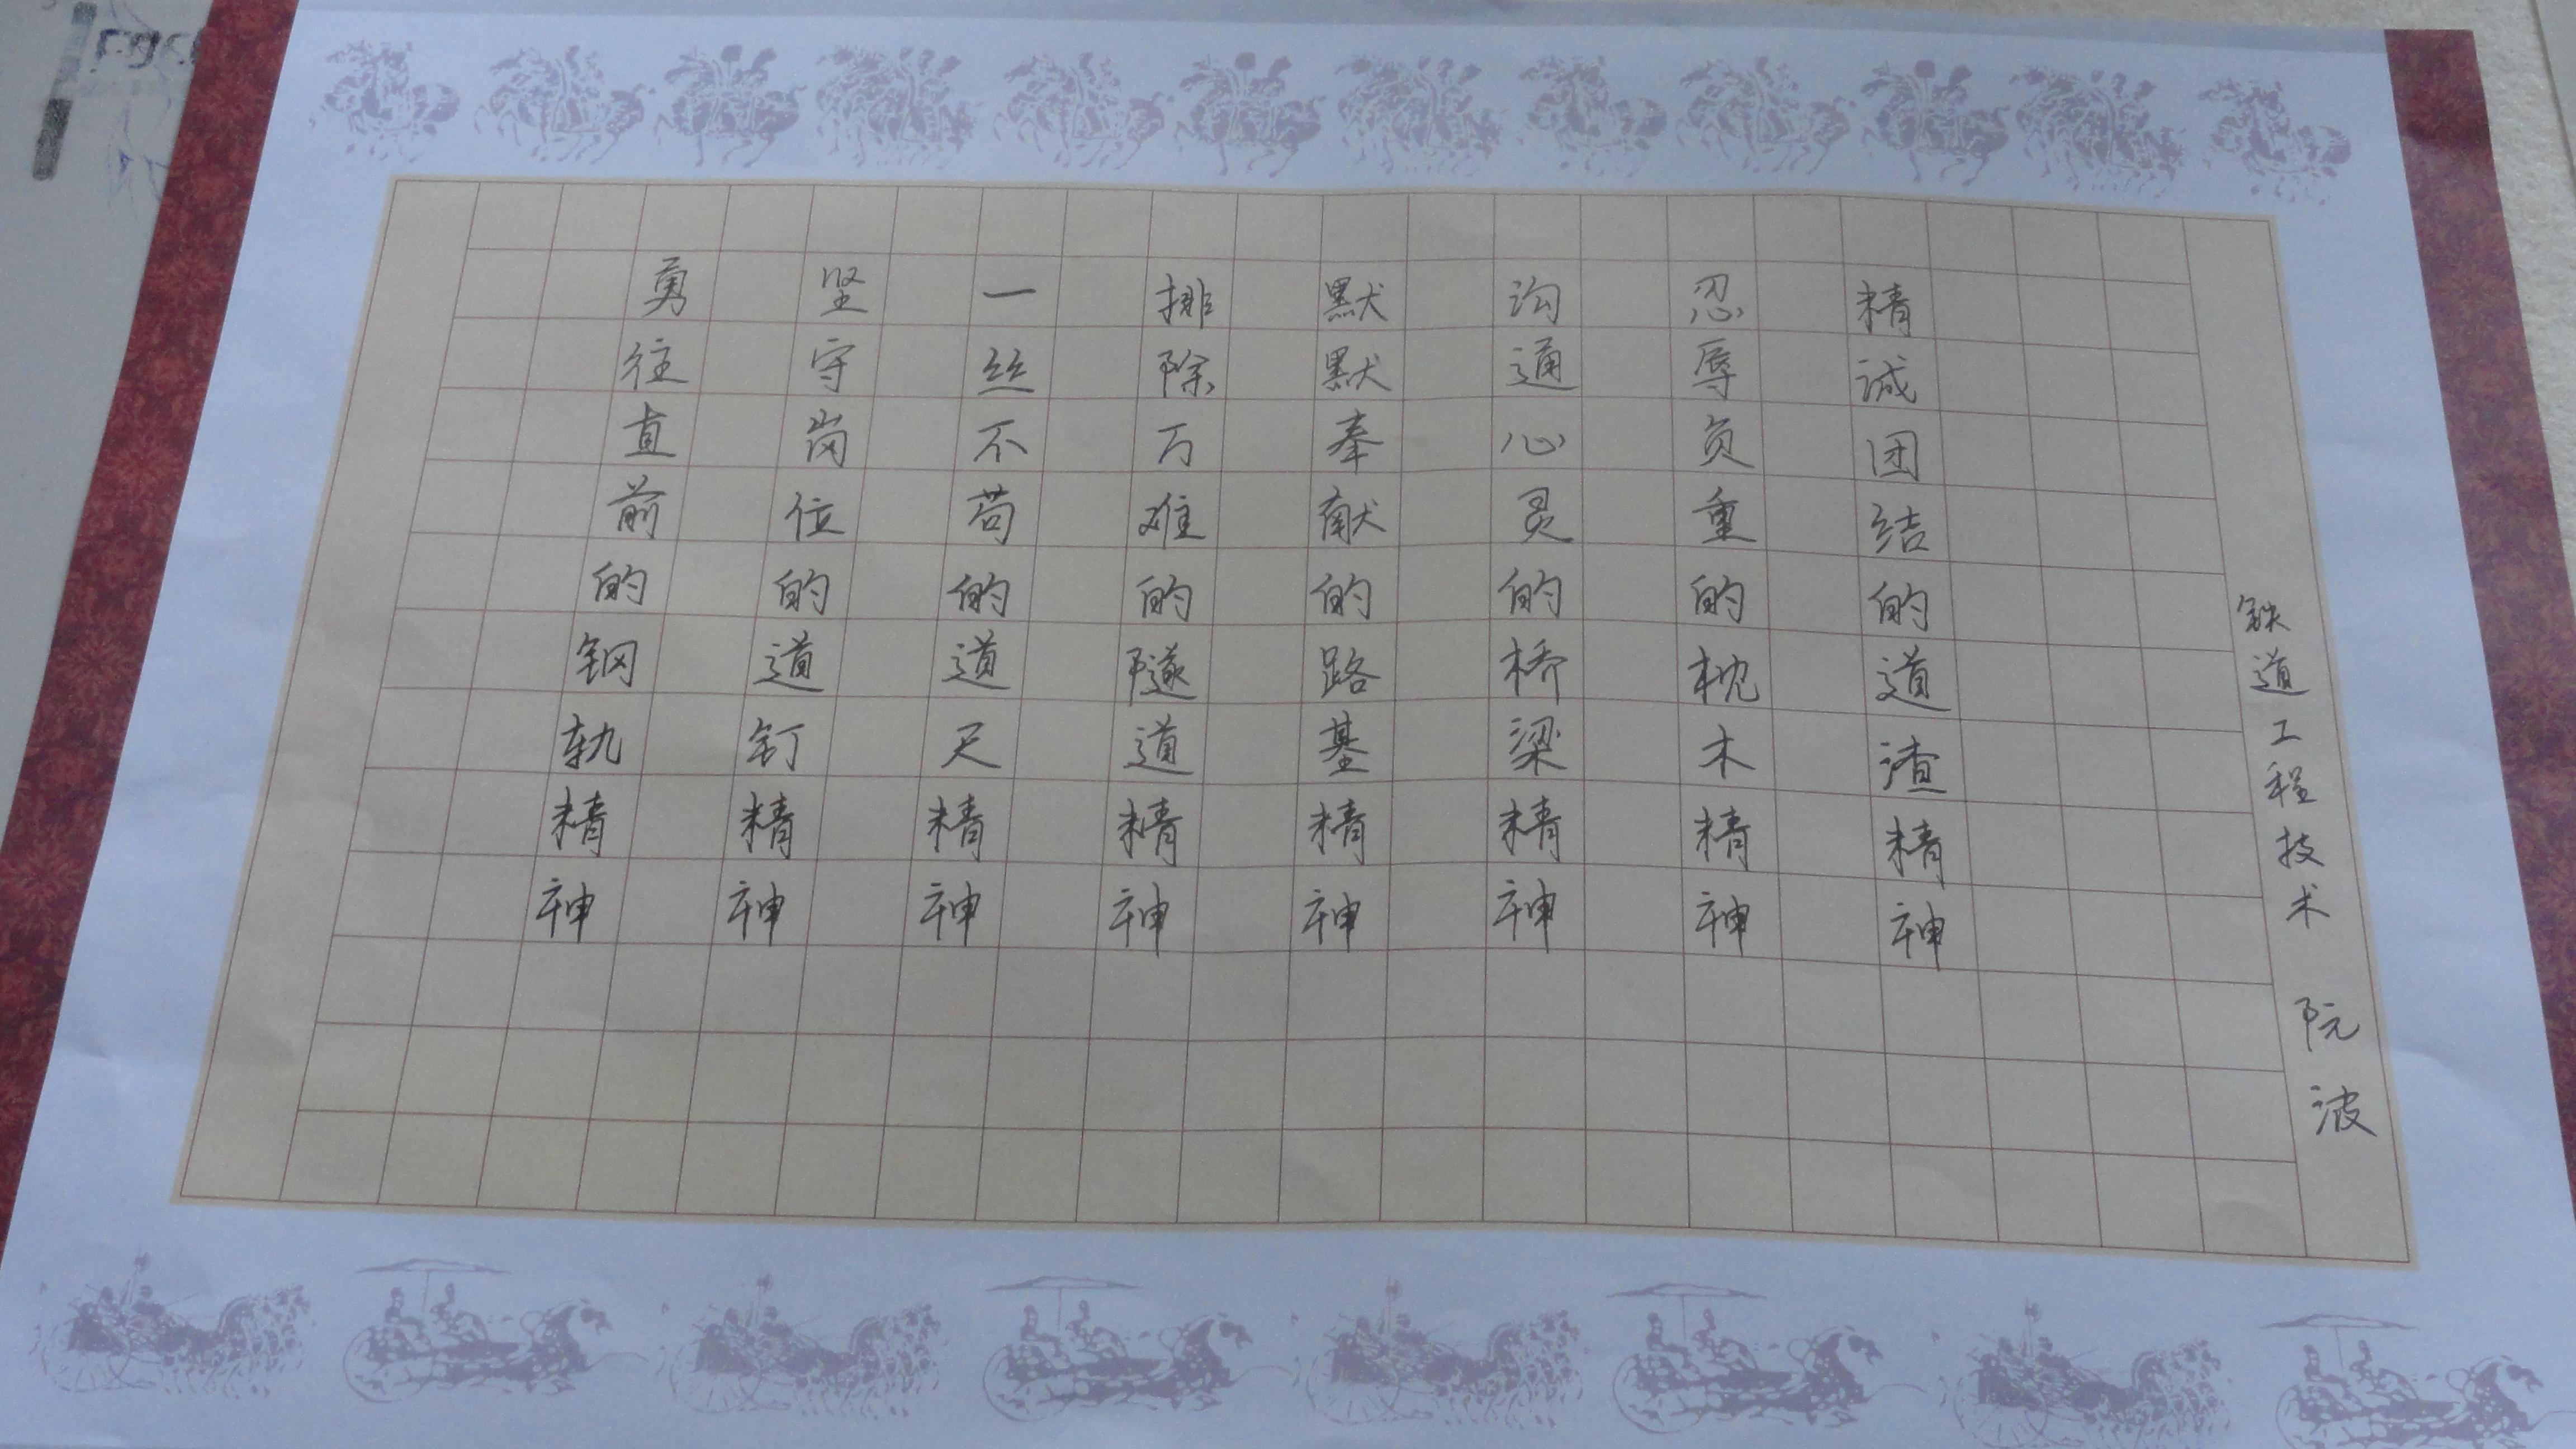 勇往直前的钢轨精神
坚守岗位的道钉精神
一丝不苟的道尺精神
排除万难的隧道精神
默默奉献的路基精神
沟通心灵的桥梁精神
忍辱负重的枕木精神
精诚团结的道渣精神
铁道工程技术 阮波